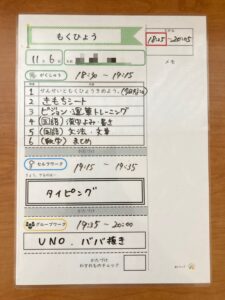 もくひょう
18:25~20:05
メモ
11.6
がくしゅう 18:30 ~ 19:15
1 せんせいともくひょうきめよう。
2 きもちシート
3 ビジョン・運筆トレーニング
4 (国語) 漢字よみ・書き
5 (国語) 文法・文章
6 (数学) まとめ
セルフワーク 19:15 ~ 19:35
タイピング
グループワーク 19:35 ~ 20:00
UNO. ババ抜き
わすれものチェック